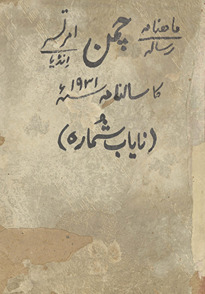 ماهنامہ رسالہ چمن امرتسر انڈیا
کا سالنامہ ۱۹۳۱ء
(نایاب شمارہ)